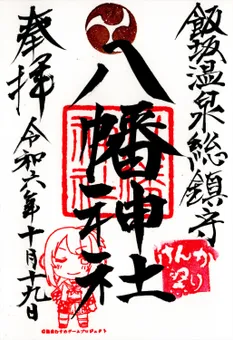 飯坂温泉総鎮守
八幡神社
奉拝
令和六年十月十九日
けんか祭り